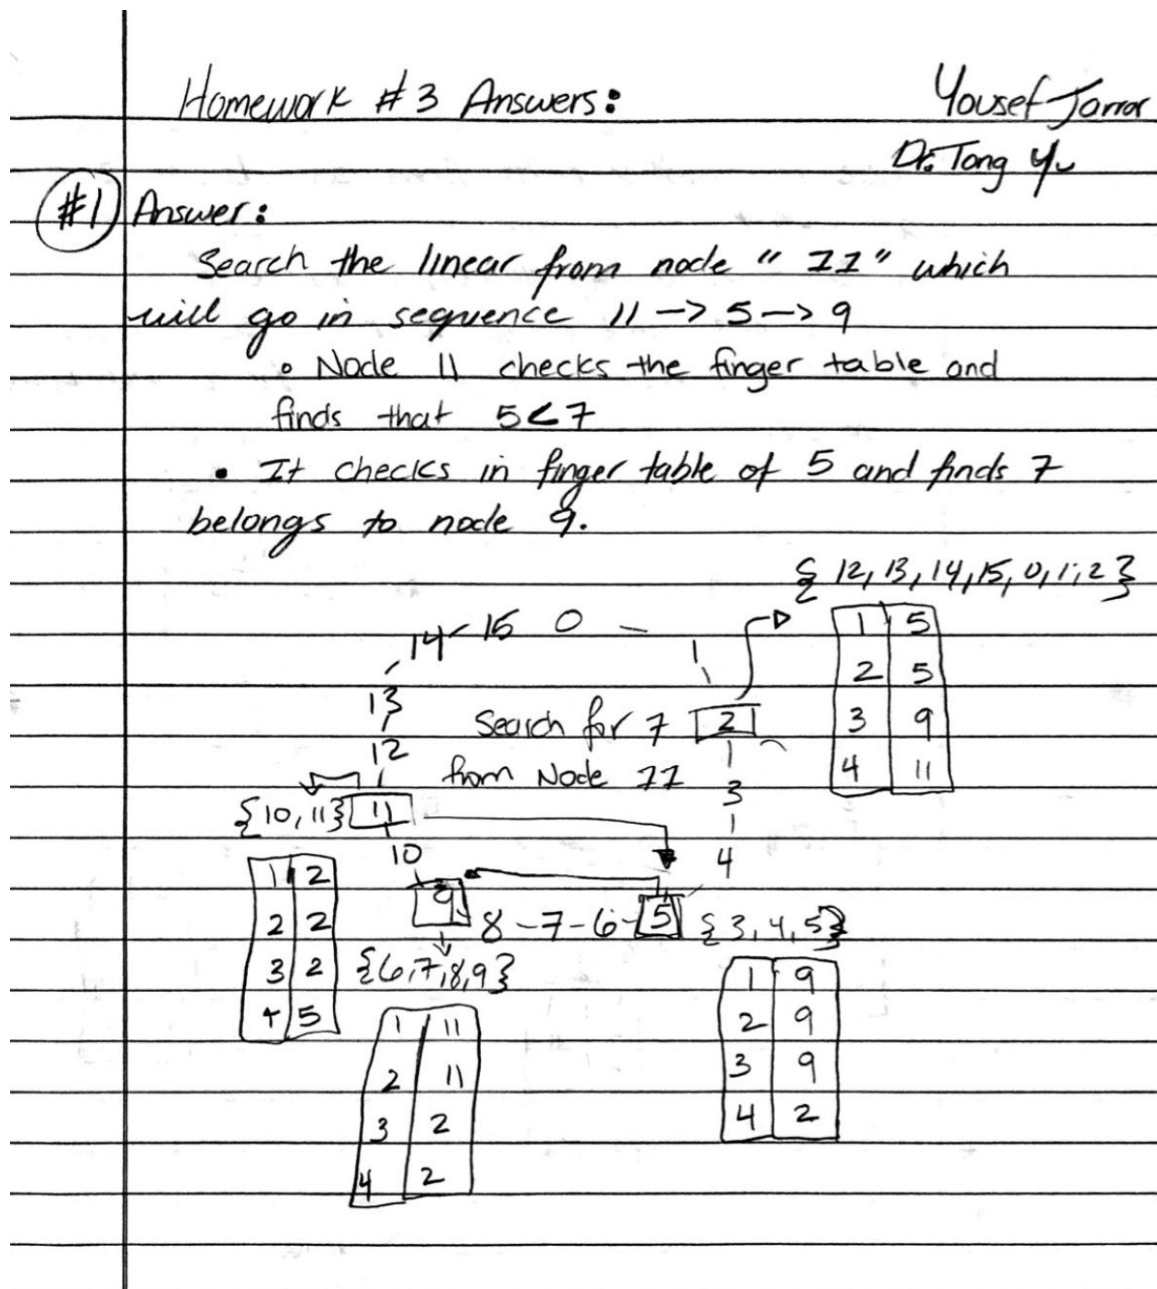 Homework #3 Answers:
Yousef Jarrar
Dr. Tong Yu
#1 Answer:
Search the linear from node "11" which
will go in sequence 11 -> 5 -> 9
• Node 11 checks the finger table and
finds that 5<7
• It checks in finger table of 5 and finds 7
belongs to node 9.
{12, 13, 14, 15, 0, 1, 2}
14 - 15 0 - 1
1 5
2 5
3 9
4 11
13
Search for 7 2
12
from Node 11
3
{10, 11} 11
10
4
9 8 - 7 - 6 - 5 {3, 4, 5}
1 2
2 2
3 2
4 5
{6,7,8,9}
1 11
2 11
3 2
4 2
1 9
2 9
3 9
4 2